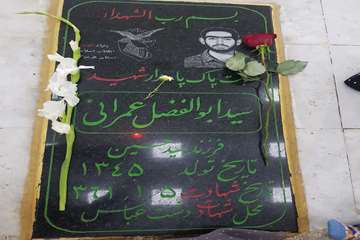 بسم رب الشهداء
پاک پاسدار شهید
سید ابوالفضل عمرانی
فرزند سید حسین
تاریخ تولد ۱۳۴۵
تاریخ شهادت
محل شهادت دشت عباس